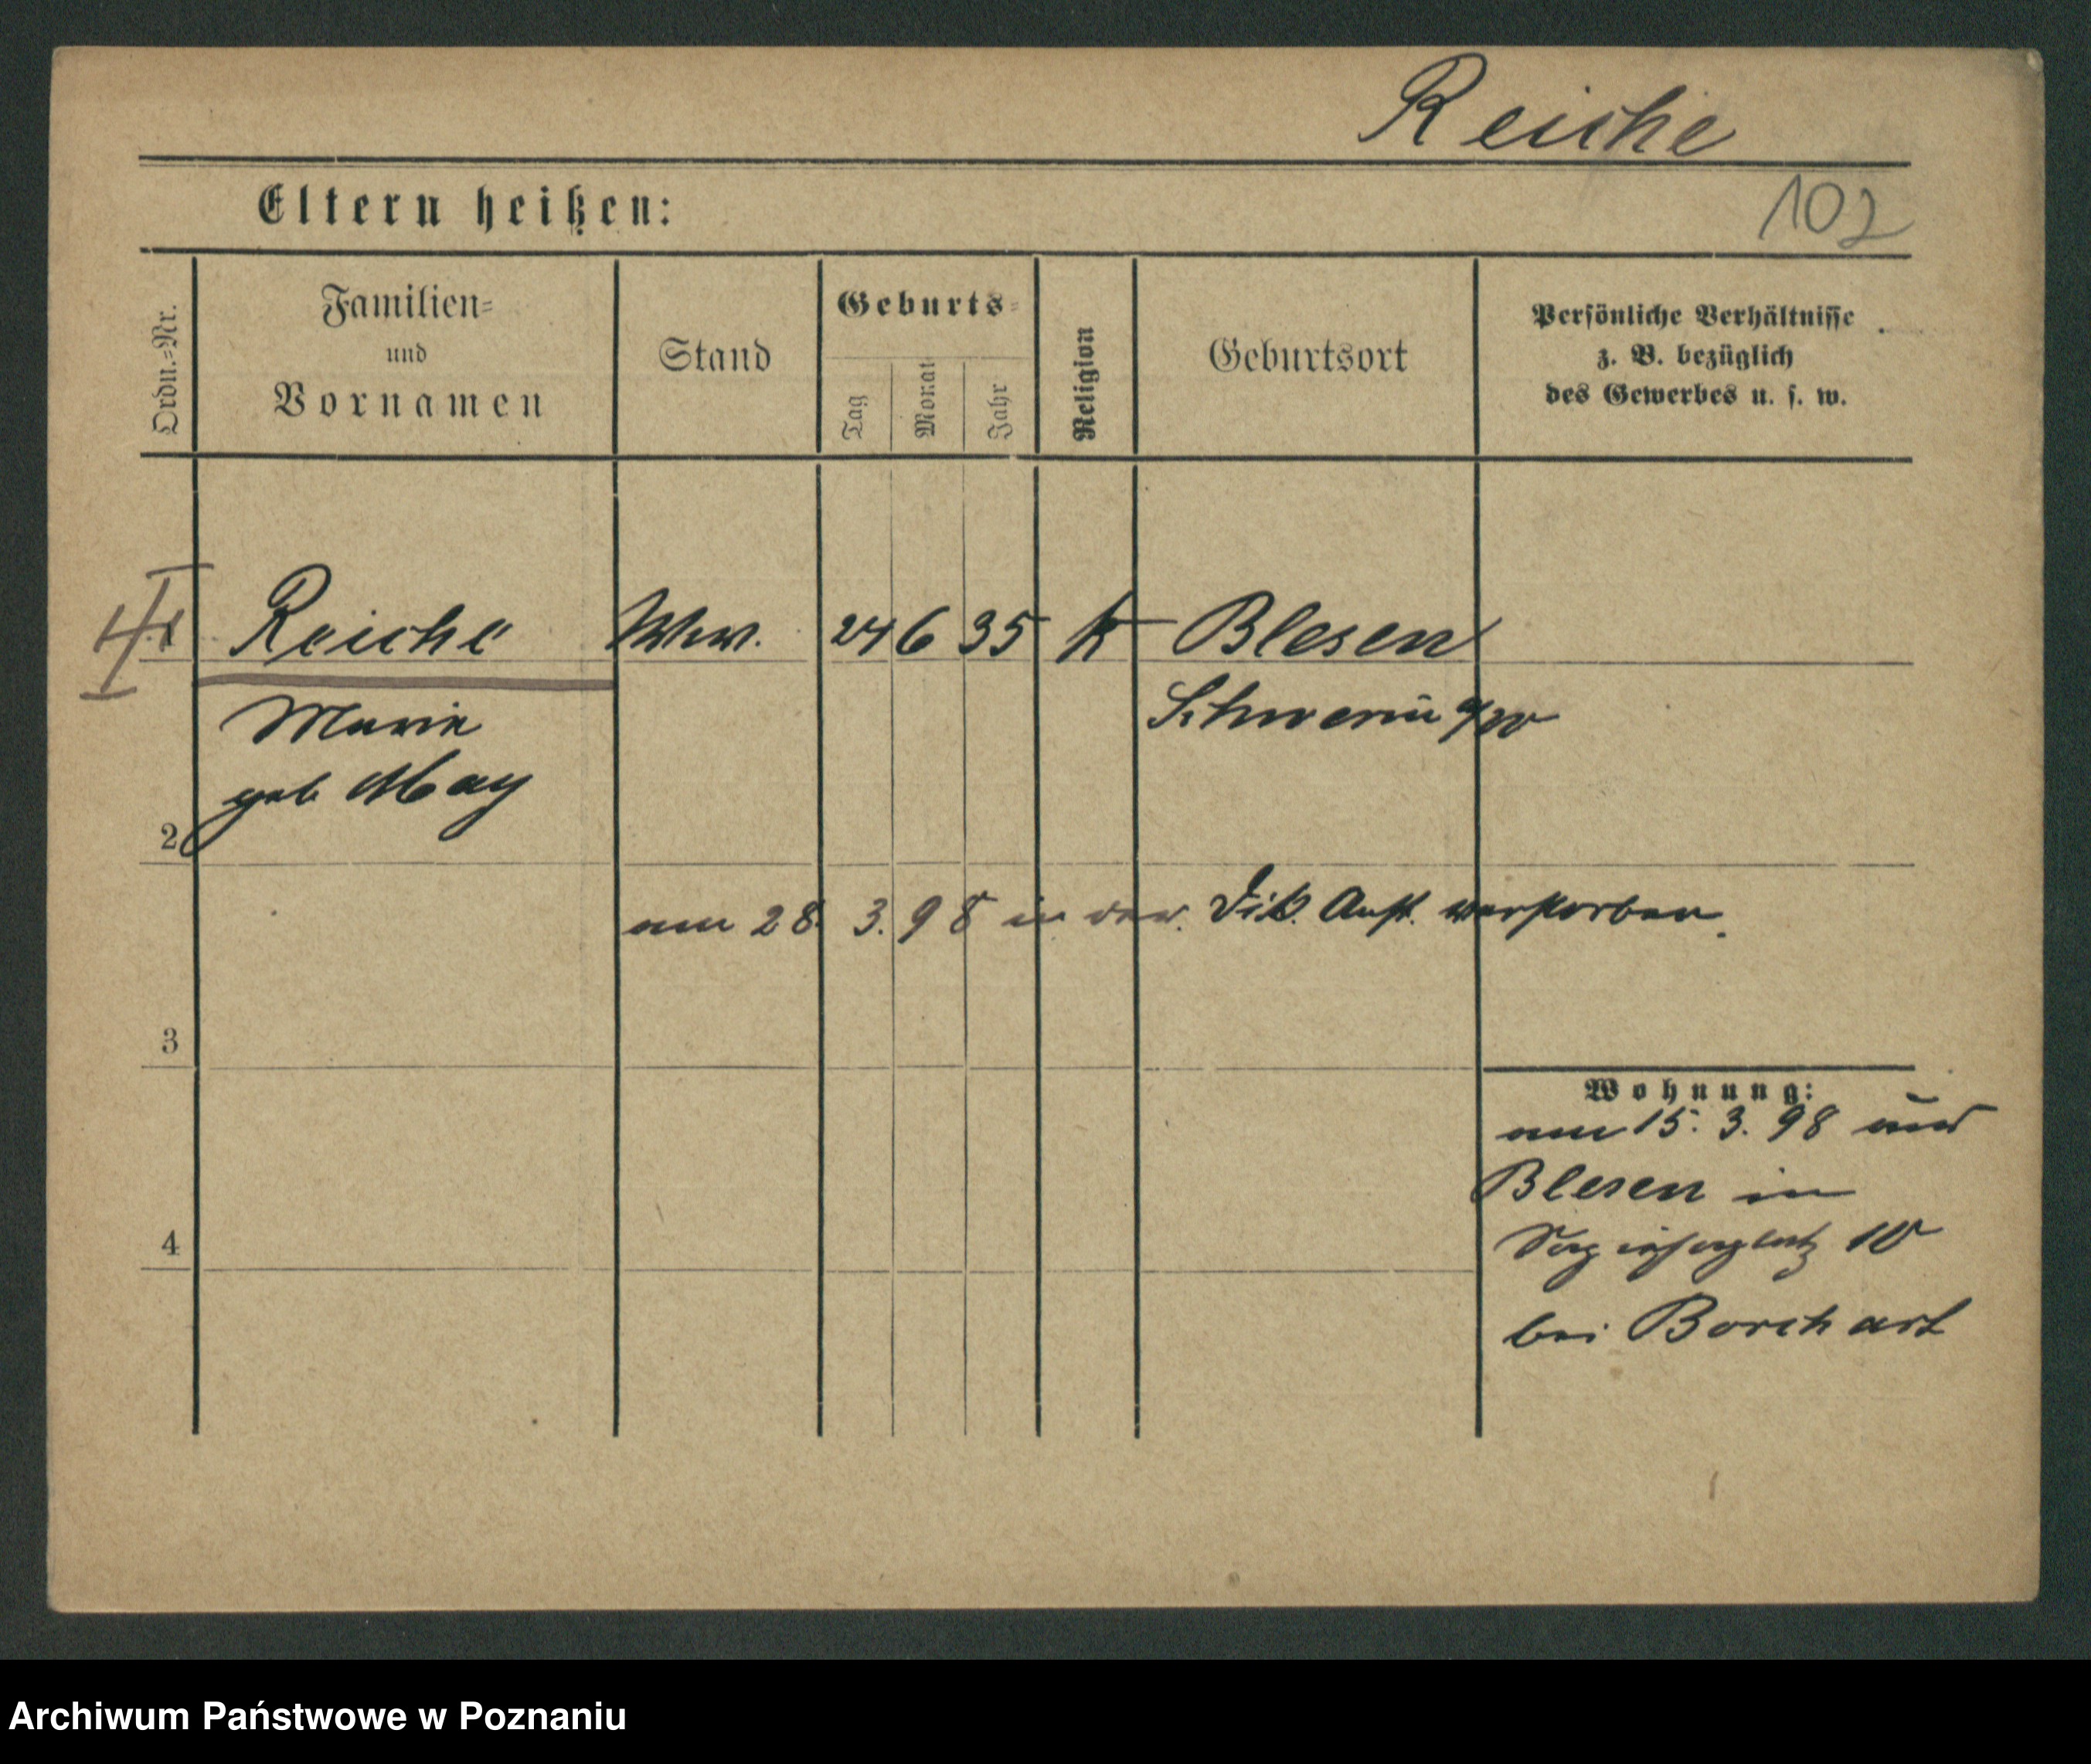 Reiche
102
Eltern heißen:
Ordn.=Nr.
Familien=
und
Vornamen
Stand
Geburts=
Tag
Monat
Jahr
Religion
Geburtsort
Persönliche Verhältnisse
z. B. bezüglich
des Gewerbes u. s. w.
Reiche Wwe. 24 6 35 k Blesen
Marie Schwerin a/W
geb May
2
am 28. 3. 98 in der Dik. Anst. verstorben.
3
Wohnung:
am 15. 3. 98 aus
Blesen in
10
bei Borchart
4
Archiwum Państwowe w Poznaniu